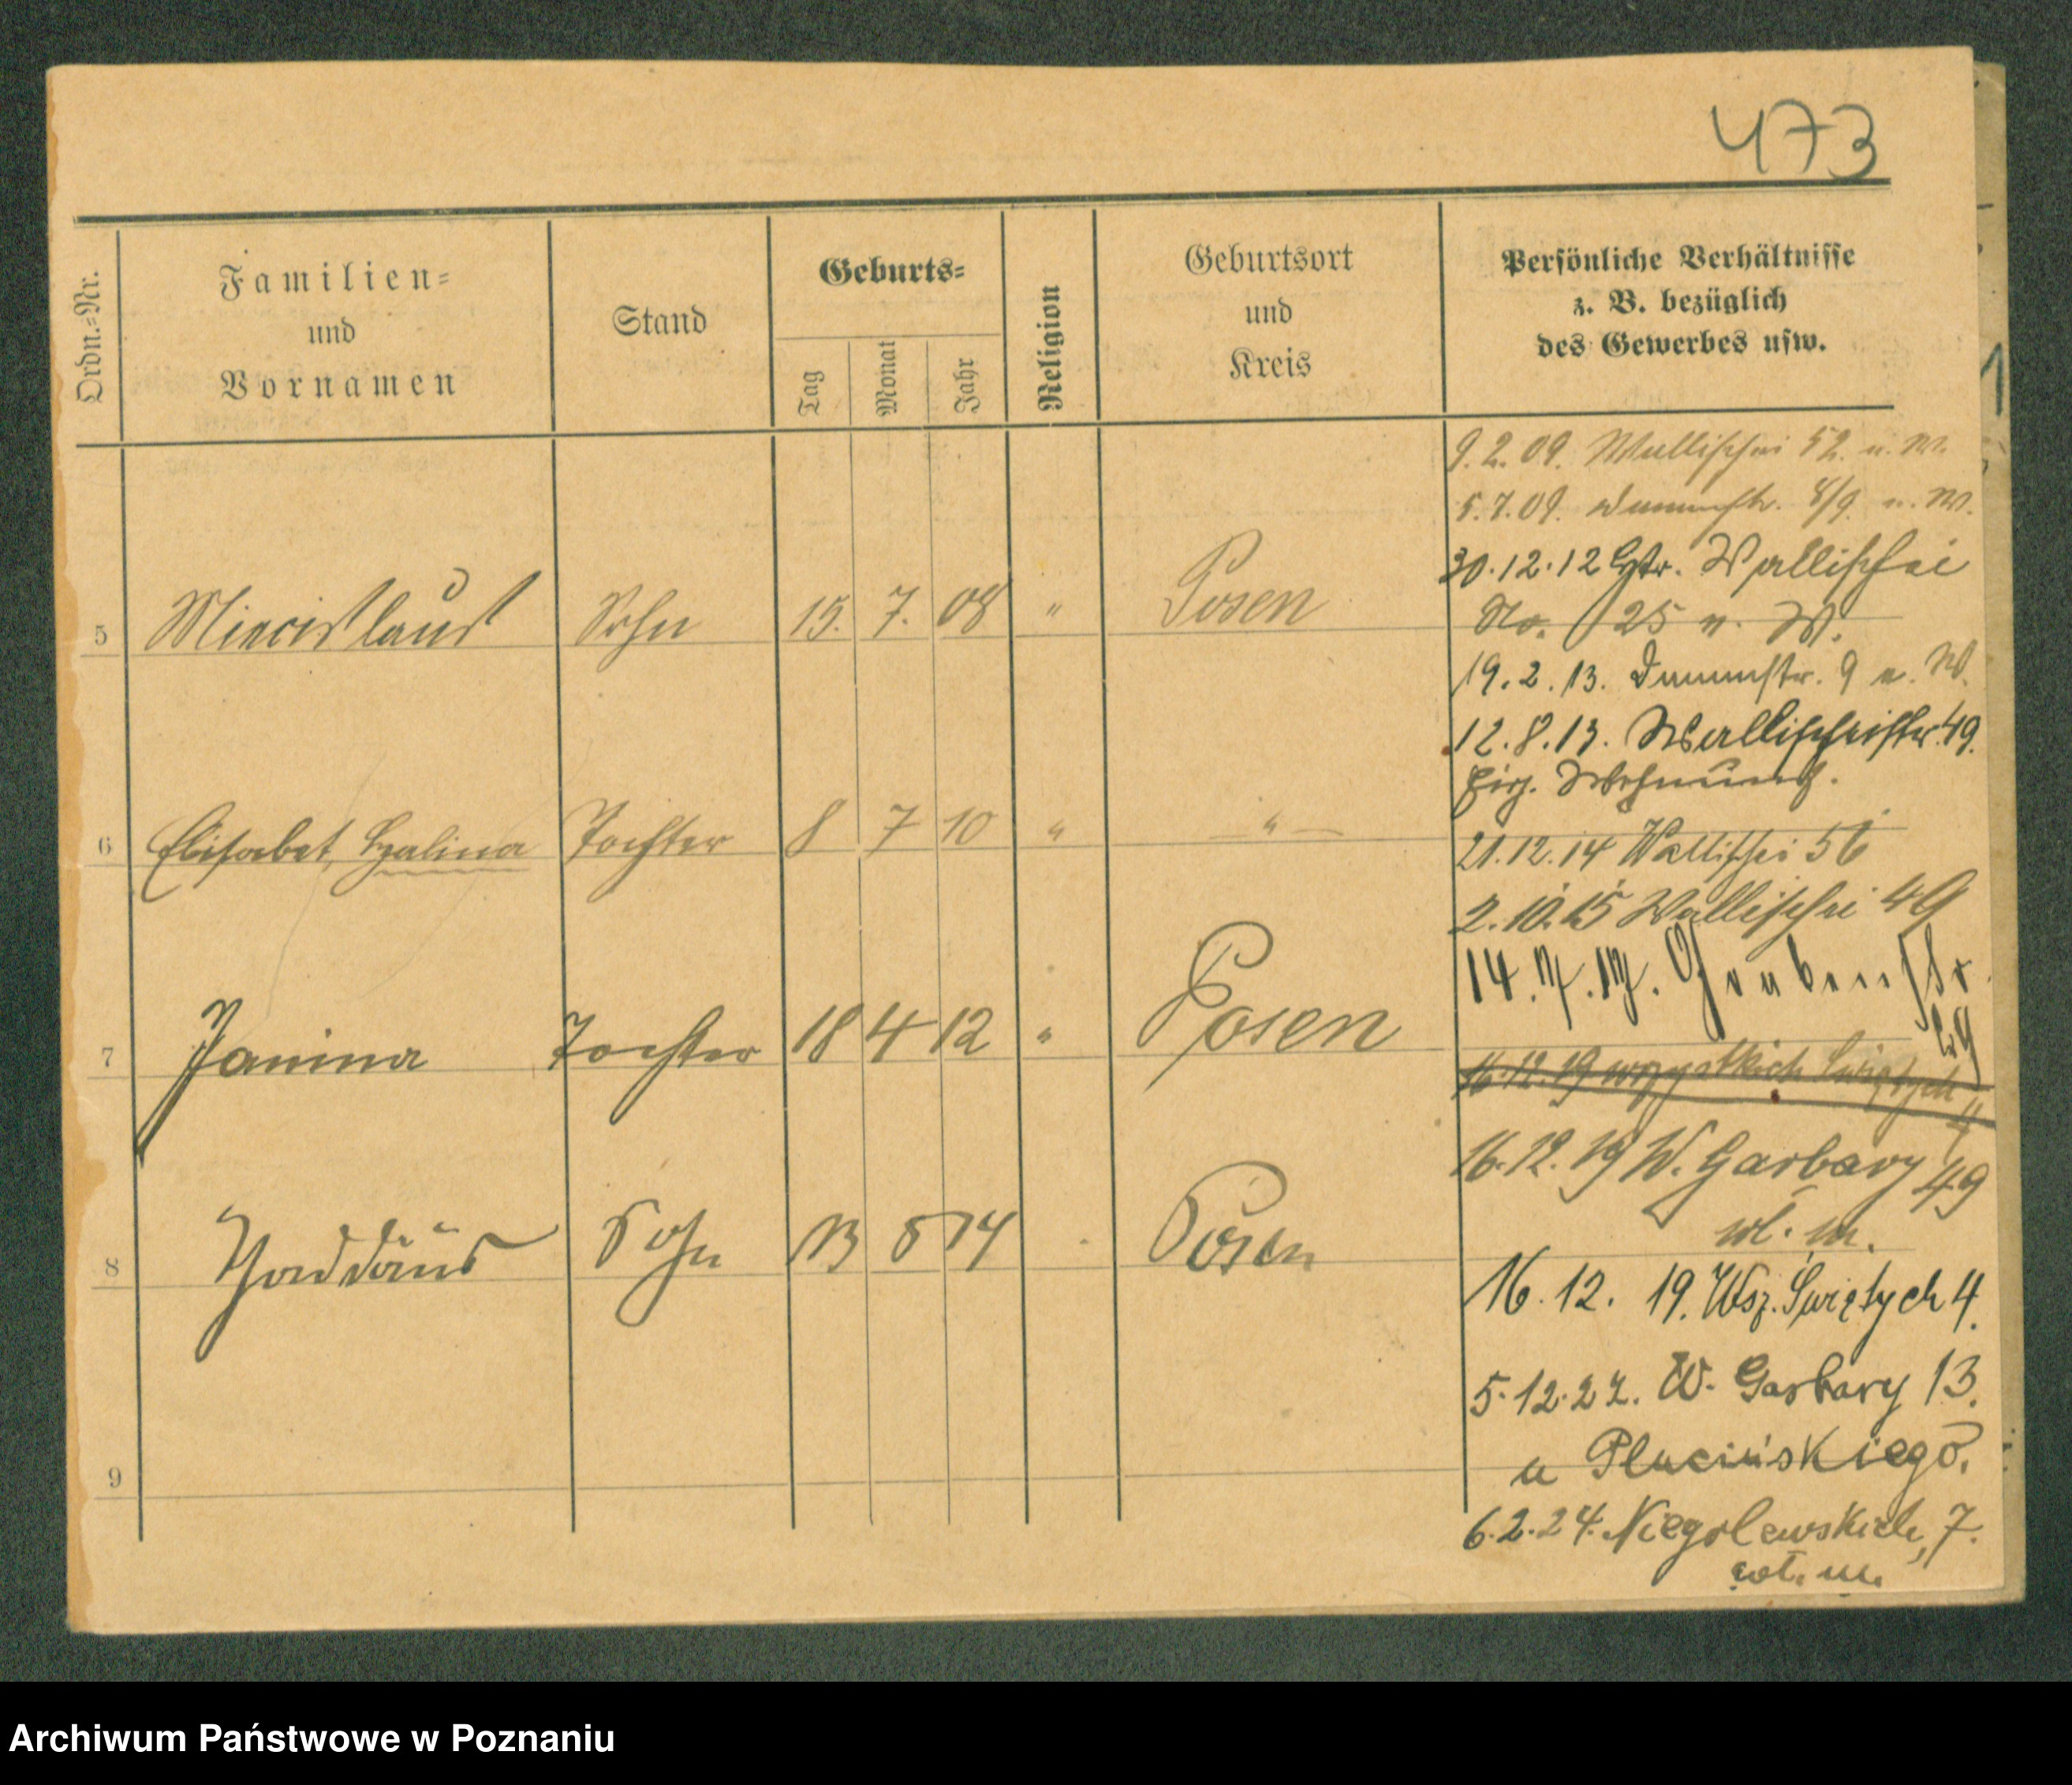 473
Ordn.-Nr.
Familien-
und
Vornamen
Stand
Geburts-
Tag
Monat
Jahr
Religion
Geburtsort
und
Kreis
Persönliche Verhältnisse
z. B. bezüglich
des Gewerbes usw.
9.2.09. Wallischei 52. u. W.
5.7.09. Dammstr. 8/9. u. W.
30.12.12 Wallischei
No. 25 u. W.
5 Miecislaus Sohn 15. 7. 08 " Posen
19.2.13. Dammstr. 9 u. W.
12.8.13. Wallischeistr. 49.
Wohnung.
6 Elisabet, Halina Tochter 8 7 10 " — " —
21.12.14 Wallischei 56
2.10.15 Wallischei 49
14.7.17. Grabenstr.
49
7 Janina Tochter 18 4 12 " Posen
16.12.19 wszystkich Świętych
4
16.12.19 W. Garbary 49
wł. m.
8 Thaddäus Sohn 13 8 14 Posen
16.12.19. Wsz. Świętych 4.
5.12.22. W. Garbary 13.
u Plucińskiego.
9
6.2.24. Niegolewskich, 7.
wł. m.
Archiwum Państwowe w Poznaniu